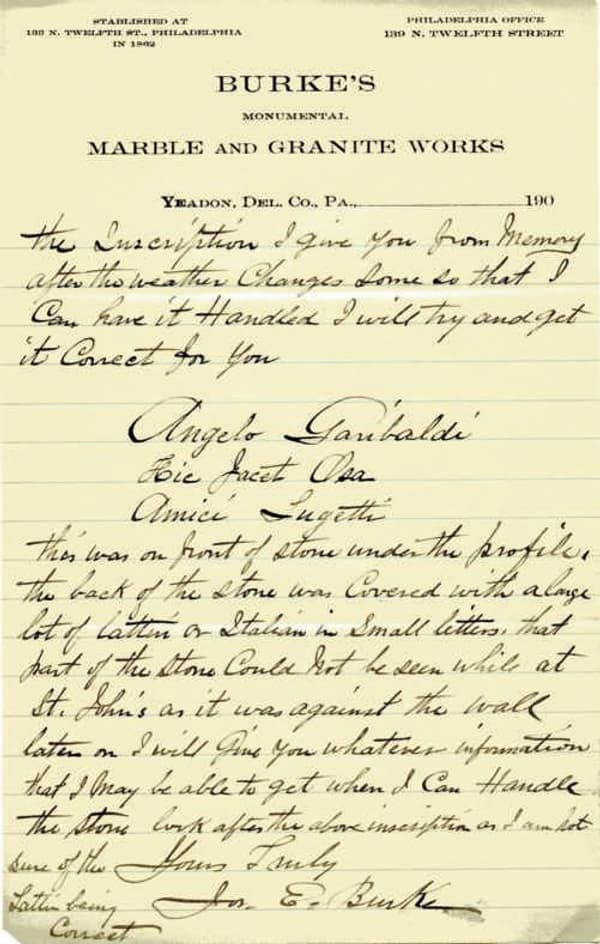 STABLISHED AT
138 N. TWELFTH ST., PHILADELPHIA
IN 1862
PHILADELPHIA OFFICE
139 N. TWELFTH STREET
BURKE'S
MONUMENTAL
MARBLE AND GRANITE WORKS
YEADON, DEL. CO., PA., 190
the Inscription I give you from Memory
after the weather Changes some so that I
Can have it Handled I will try and get
it Correct for You
Angelo Garibaldi
Hic Jacet Osa
Amici Lugetti
this was on front of stone under the profile,
the back of the stone was Covered with a large
lot of lattin or Italian in Small letters, that
part of the Stone Could Not be seen while at
St. John's as it was against the wall
later on I will Give You whatever information
that I May be able to get when I Can Handle
the Stone look after the above inscription as I am not
sure of the
Lattin being
Correct
Yours Truly
Jos. E. Burke